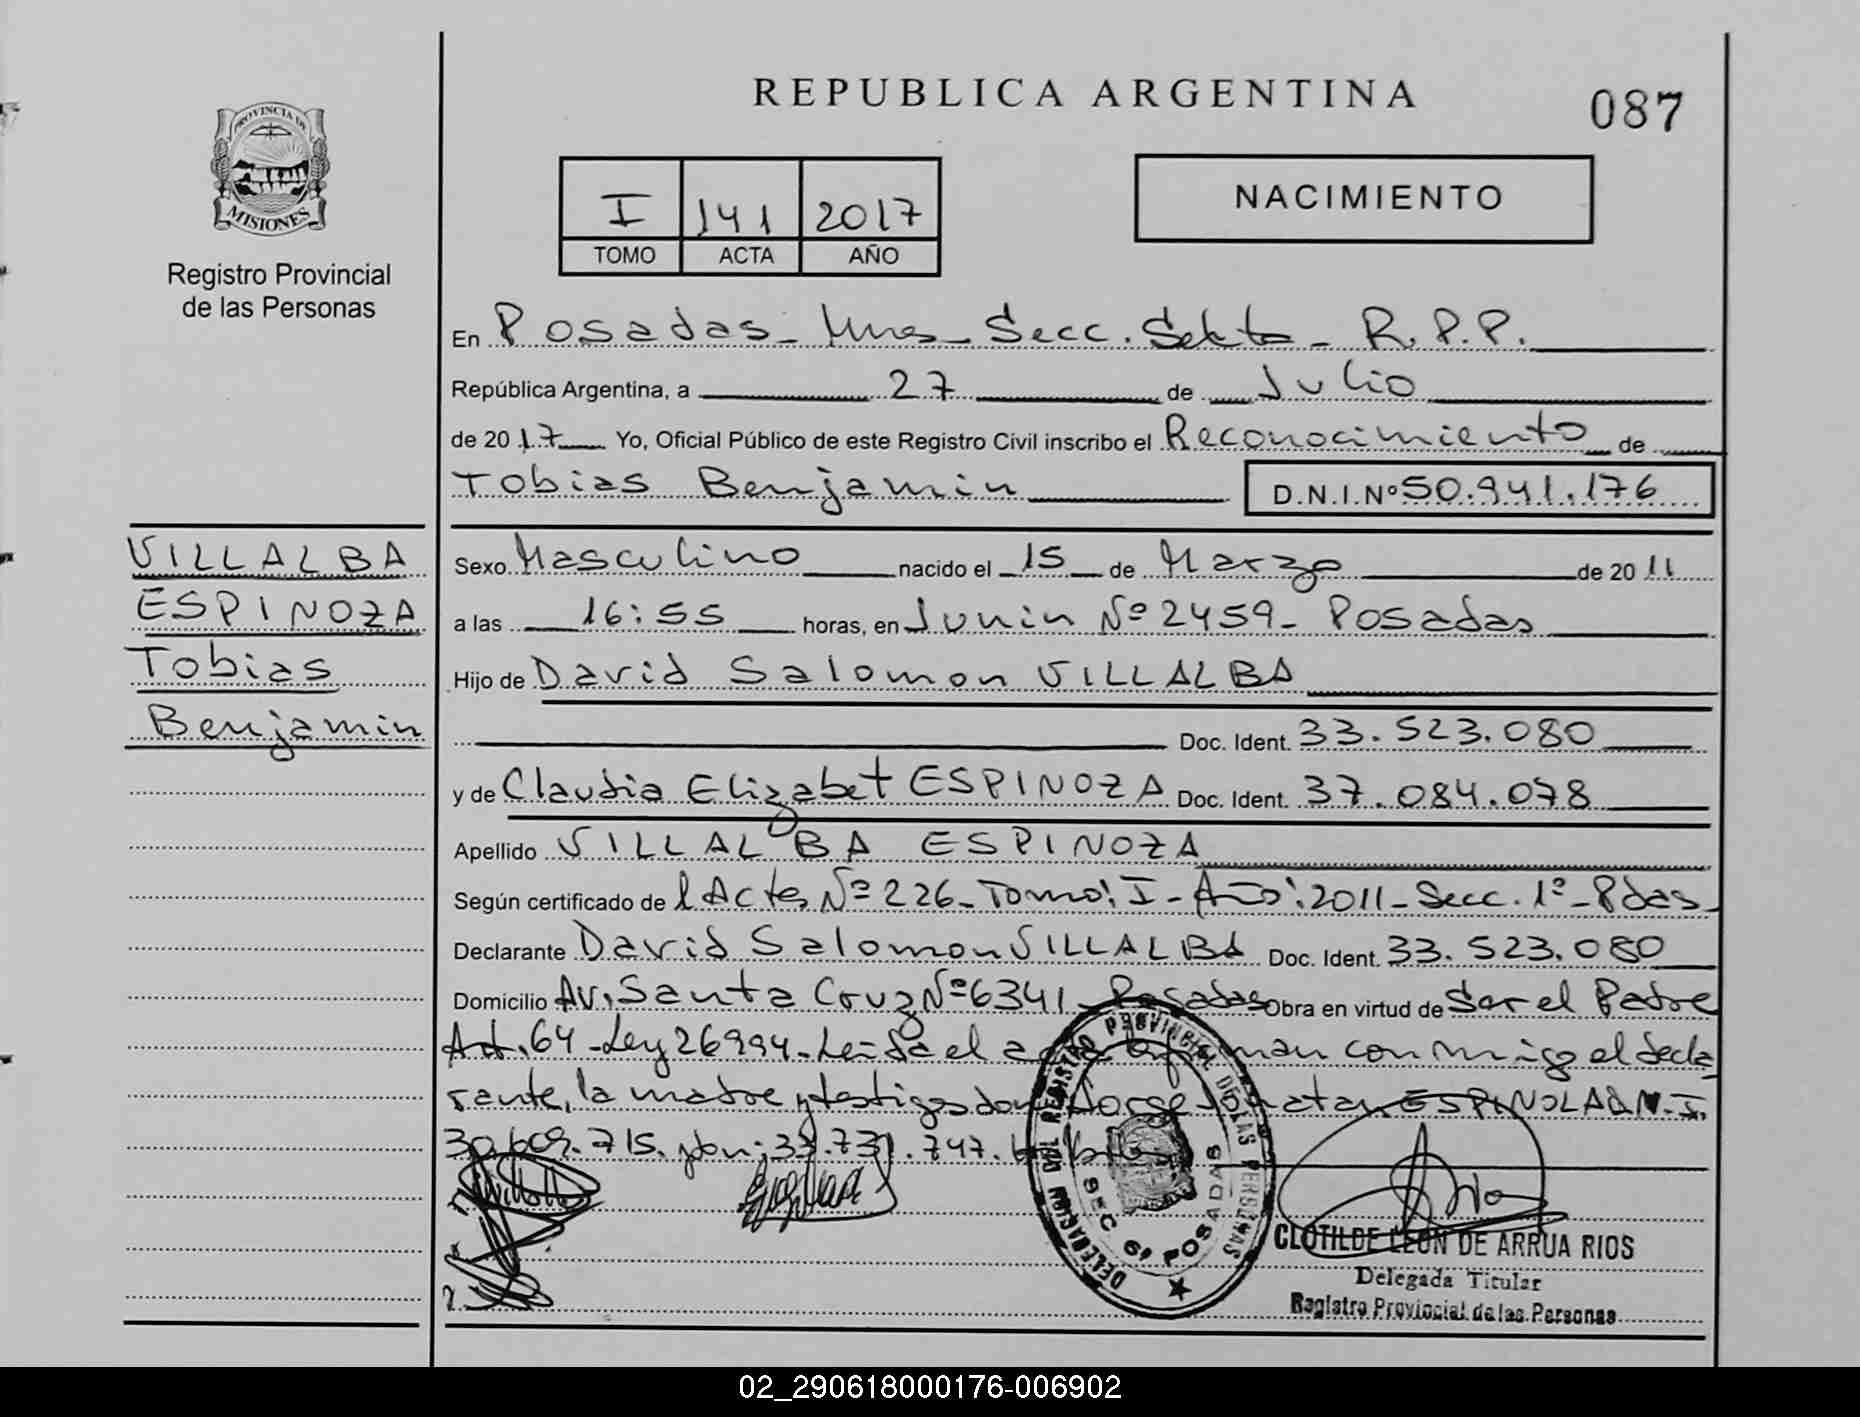 REPUBLICA ARGENTINA
087
PROVINCIA DE
MISIONES
Registro Provincial
de las Personas
I 141 2017
TOMO ACTA AÑO
NACIMIENTO
En Posadas - Mnes - Secc. Sexta - R.P.P.
República Argentina, a 27 de Julio
de 2017 Yo, Oficial Público de este Registro Civil inscribo el Reconocimiento de
Tobias Benjamin D.N.I.Nº 50.941.176
VILLALBA
ESPINOZA
Tobias
Benjamin
Sexo Masculino nacido el 15 de Marzo de 2011
a las 16:55 horas, en Junin Nº 2459 - Posadas
Hijo de David Salomon VILLALBA
Doc. Ident. 33.523.080
y de Claudia Elizabet ESPINOZA Doc. Ident. 37.084.078
Apellido VILLALBA ESPINOZA
Según certificado de l Acta Nº 226 - Tomo: I - Año: 2011 - Secc. 1º - Pdas -
Declarante David Salomon VILLALBA Doc. Ident. 33.523.080
Domicilio Av. Santa Cruz Nº 6341 - Posadas Obra en virtud de Ser el Padre
Art. 64 - Ley 26994 - Leida el acta firman conmigo el decla
rante, la madre y testigos don Jorge ESPINOLA D.N.I.
30.609.715. y don: 33.731.747.
DELEGACION DEL REGISTRO PROVINCIAL DE LAS PERSONAS
SEC 6ª POSADAS
CLOTILDE LEON DE ARRUA RIOS
Delegada Titular
Registro Provincial de las Personas
02_290618000176-006902